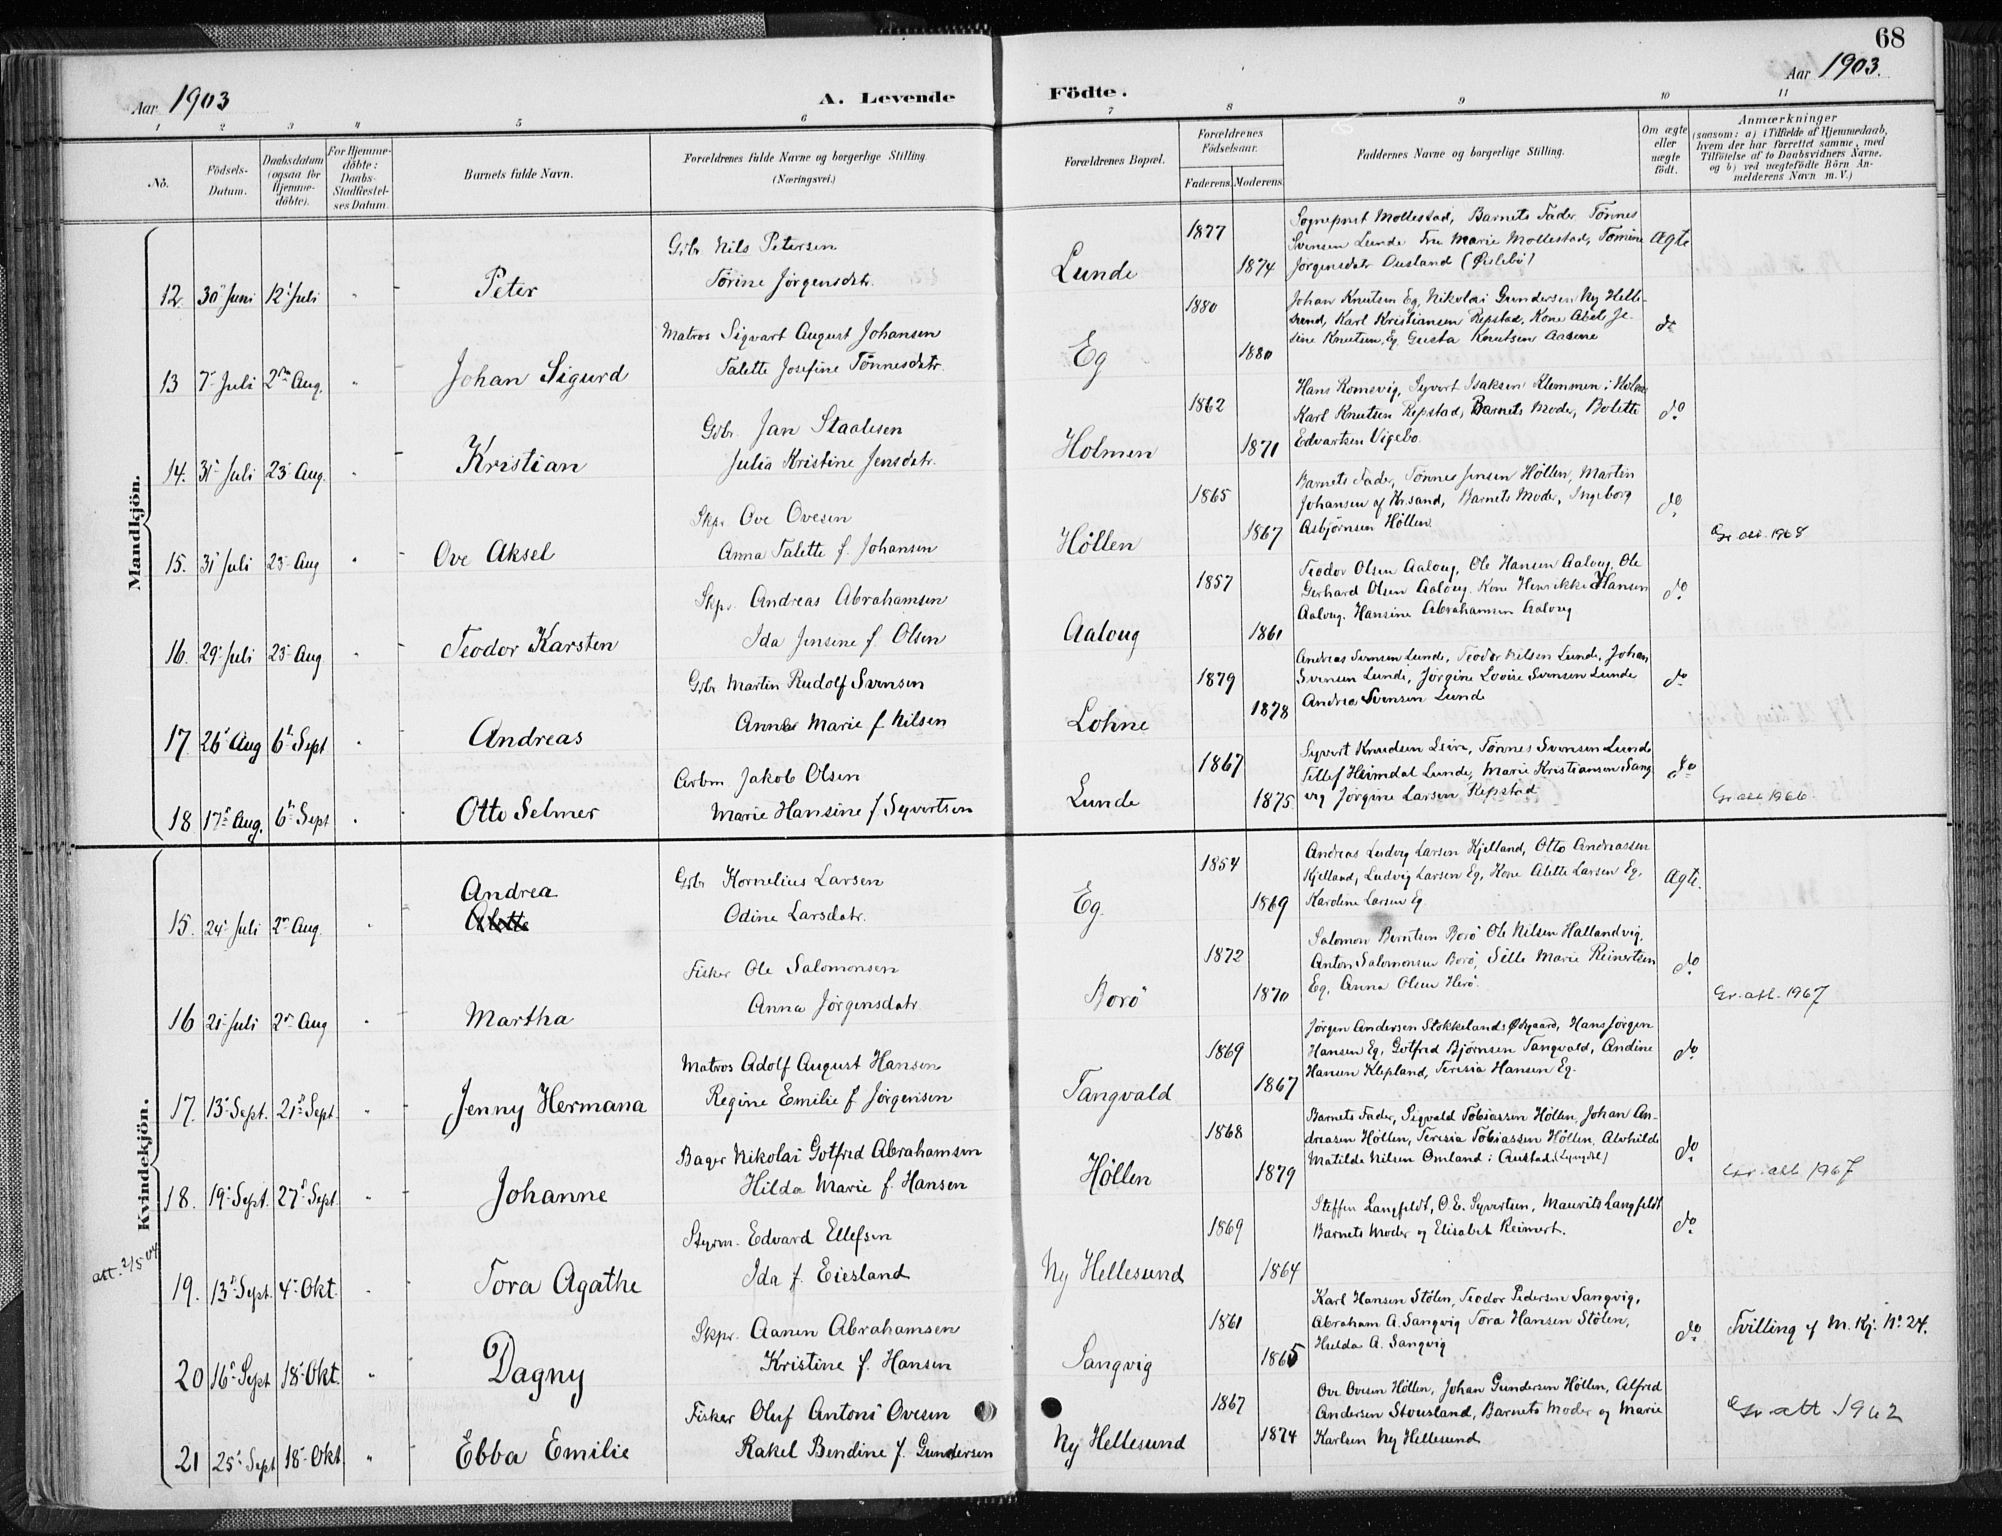 68
Aar 1903
A. Levende Födte.
Aar 1903.
1 2 3 4 5 6 7 8 9 10 11
No.
Födsels-Datum.
Daabsdatum (ogsaa for Hjemme-döbte).
For Hjemme-döbte: Daabs-Stadfæstel-ses Datum.
Barnets fulde Navn.
Forældrenes fulde Navne og borgerlige Stilling (Næringsvei.)
Forældrenes Bopæl.
Forældrenes Födselsaar.
Faderens. Moderens.
Faddernes Navne og borgerlige Stilling.
Om ægte eller uægte födt.
Anmærkninger
(saasom: a) i Tilfælde af Hjemmedaab, hvem der har forrettet samme, med Tilföielse af to Daabsvidners Navne, og b) ved uægtefödte Börn An-melderens Navn m. V.)
Mandkjön.
12. 30 Juni 12 Juli " Peter
Gbr. Nils Petersen
Torine Jörgensdtr.
Lunde 1877 1874
Sogneprest Mollestad, Barnets Fader, Tönnes
Svensen Lunde Fru Marie Mollestad, Tomine
Jörgensdatr Ousland (Øislebö)
Ægte
13 7 Juli 2 Aug. " Johan Sigurd
Matros Sigvart August Johansen
Talette Josefine Tönnesdtr.
Eg 1880 1880
Johan Knutsen Eg, Nikolai Gundersen Ny Helle-
sund, Karl Kristiansen Repstad, Kone Abel Je-
sine Knutsen, Eg Gusta Knutsen Aasene
do
14. 31 Juli 23 Aug. " Kristian
Gbr. Jan Staalesen
Julia Kristine Jensdtr.
Holmen 1862 1871
Hans Romsvig, Syvert Isaksen Klemmen i Holme
Karl Knutsen Repstad, Barnets Moder, Bolette
Edvartsen Vigebo
do
15. 31 Juli 23 Aug " Ove Aksel
Skpr. Ove Ovesen
Anna Talette f. Johansen
Höllen 1865 1867
Barnets Fader, Tönnes Jensen Höllen, Martin
Johansen af Kr.sand, Barnets Moder, Ingeborg
Asbjörnsen Höllen
do
Gr. att. 1968
16. 29 Juli 23 Aug " Teodor Karsten
Skpr. Andreas Abrahamsen
Ida Jensine f. Olsen
Aaloug 1857 1861
Teodor Olsen Aaloug, Ole Hansen Aaloug, Ole
Gerhard Olsen Aaloug. Kone Henrikke Hansen
Aaloug. Hansine Abrahamsen Aaloug
do
17 26 Aug 6 Sept " Andreas
Gbr Martin Rudolf Svensen
Anna Marie f. Nilsen
Lohne 1879 1878
Andreas Svensen Lunde, Teodor Nilsen Lunde, Johan
Svensen Lunde, Jörgine Lovise Svensen Lunde
Andrea Svensen Lunde
do
18 17 Aug. 6 Sept " Otto Selmer
Arbm. Jakob Olsen
Marie Hansine f Syvertsen
Lunde 1867 1875.
Syvert Knudsen Leire, Tönnes Svensen Lunde
Tellef Heimdal Lunde, Marie Kristiansen Sang
vig Jörgine Larsen Repstad
do
Gr att 1966.
Kvindekjön.
15. 24 Juli 2 Aug. " Andrea
Gbr Kornelius Larsen
Odine Larsdatr.
Eg. 1854 1869
Andreas Ludvig Larsen Kjelland, Otto Andreassen
Kjelland, Ludvig Larsen Eg, Kone Alette Larsen Eg,
Karoline Larsen Eg.
Ægte.
16 21 Juli 2 Aug " Martha
Fisker Ole Salomonsen
Anna Jörgensdatr
Borö 1872 1870
Salomon Berntsen Borö Ole Nilsen Hallandvig.
Anton Salomonsen Borö, Sille Marie Reinertsen
Eg, Anna Olsen Herö.
do
Gr. att. 1967
17. 13 Sept. 21 Sept. " Jenny Hermana
Matros Adolf August Hansen
Regine Emilie f. Jörgensen
Tangvald 1869 1867
Jörgen Andersen Stokkeland, Ødegaard, Hans Jörgen
Hansen Eg, Gotfred Bjørnsen Tangvald, Andine
Hansen Klepland, Teresia Hansen Eg.
do
18. 19 Sept. 27 Sept. " Johanne
Bager Nikolai Gotfred Abrahamsen
Hilda Marie f. Hansen
Höllen 1868 1879
Barnets Fader, Sigvald Tobiassen Höllen, Johan An-
dreasen Höllen, Teresia Tobiassen Höllen, Alvhilde
Matilde Nilsen Omland i Austad (Lyngdal)
do
Gr. att 1967
att. 2/5 04
19. 13 Sept. 4 Okt. " Tora Agathe
Styrm. Edvard Ellefsen
Ida f. Eiesland
Ny Hellesund 1869 1864
Steffen Langfeldt, O.E. Syvertsen, Maurits Langfeldt
Barnets Moder og Elisabet Reimert.
do
20 16 Sept 18 Okt. " Dagny
Skpr. Aanen Abrahamsen
Kristine f. Hansen
Sangvig 1861 1865
Karl Hansen Stölen, Teodor Pedersen Sangvig,
Abraham A. Sangvig Tora Hansen Stölen,
Hulda A. Sangvig
do
Tvilling af M. Kj. No 24.
21 25 Sept 18 Okt " Ebba Emilie
Fisker Oluf Antoni Ovesen
Rakel Bendine f. Gundersen
Ny Hellesund 1867 1874
Ove Ovesen Höllen, Johan Gundersen Höllen, Alfred
Andersen Stousland, Barnets Moder og Marie
Karlsen Ny Hellesund
Gr att 1962